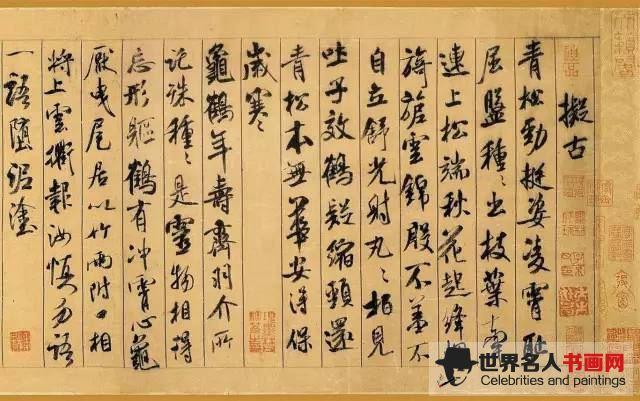 擬古
青松勁挺姿凌霄恥
屈盤種〻出枝葉牽
連上松端秋花起絳烟
旖旎雲錦殷不羞不
自立舒光射丸〻柏見
吐子效鶴疑縮頸還
青松本無華安得保
歲寒
龜鶴年壽齊羽介所
託殊種〻是靈物相得
忘形軀鶴有沖霄心龜
厭曳尾居以竹兩附口相
將上雲衢報汝慎勿語
一語墮泥塗
世界名人书画网
Celebrities and paintings